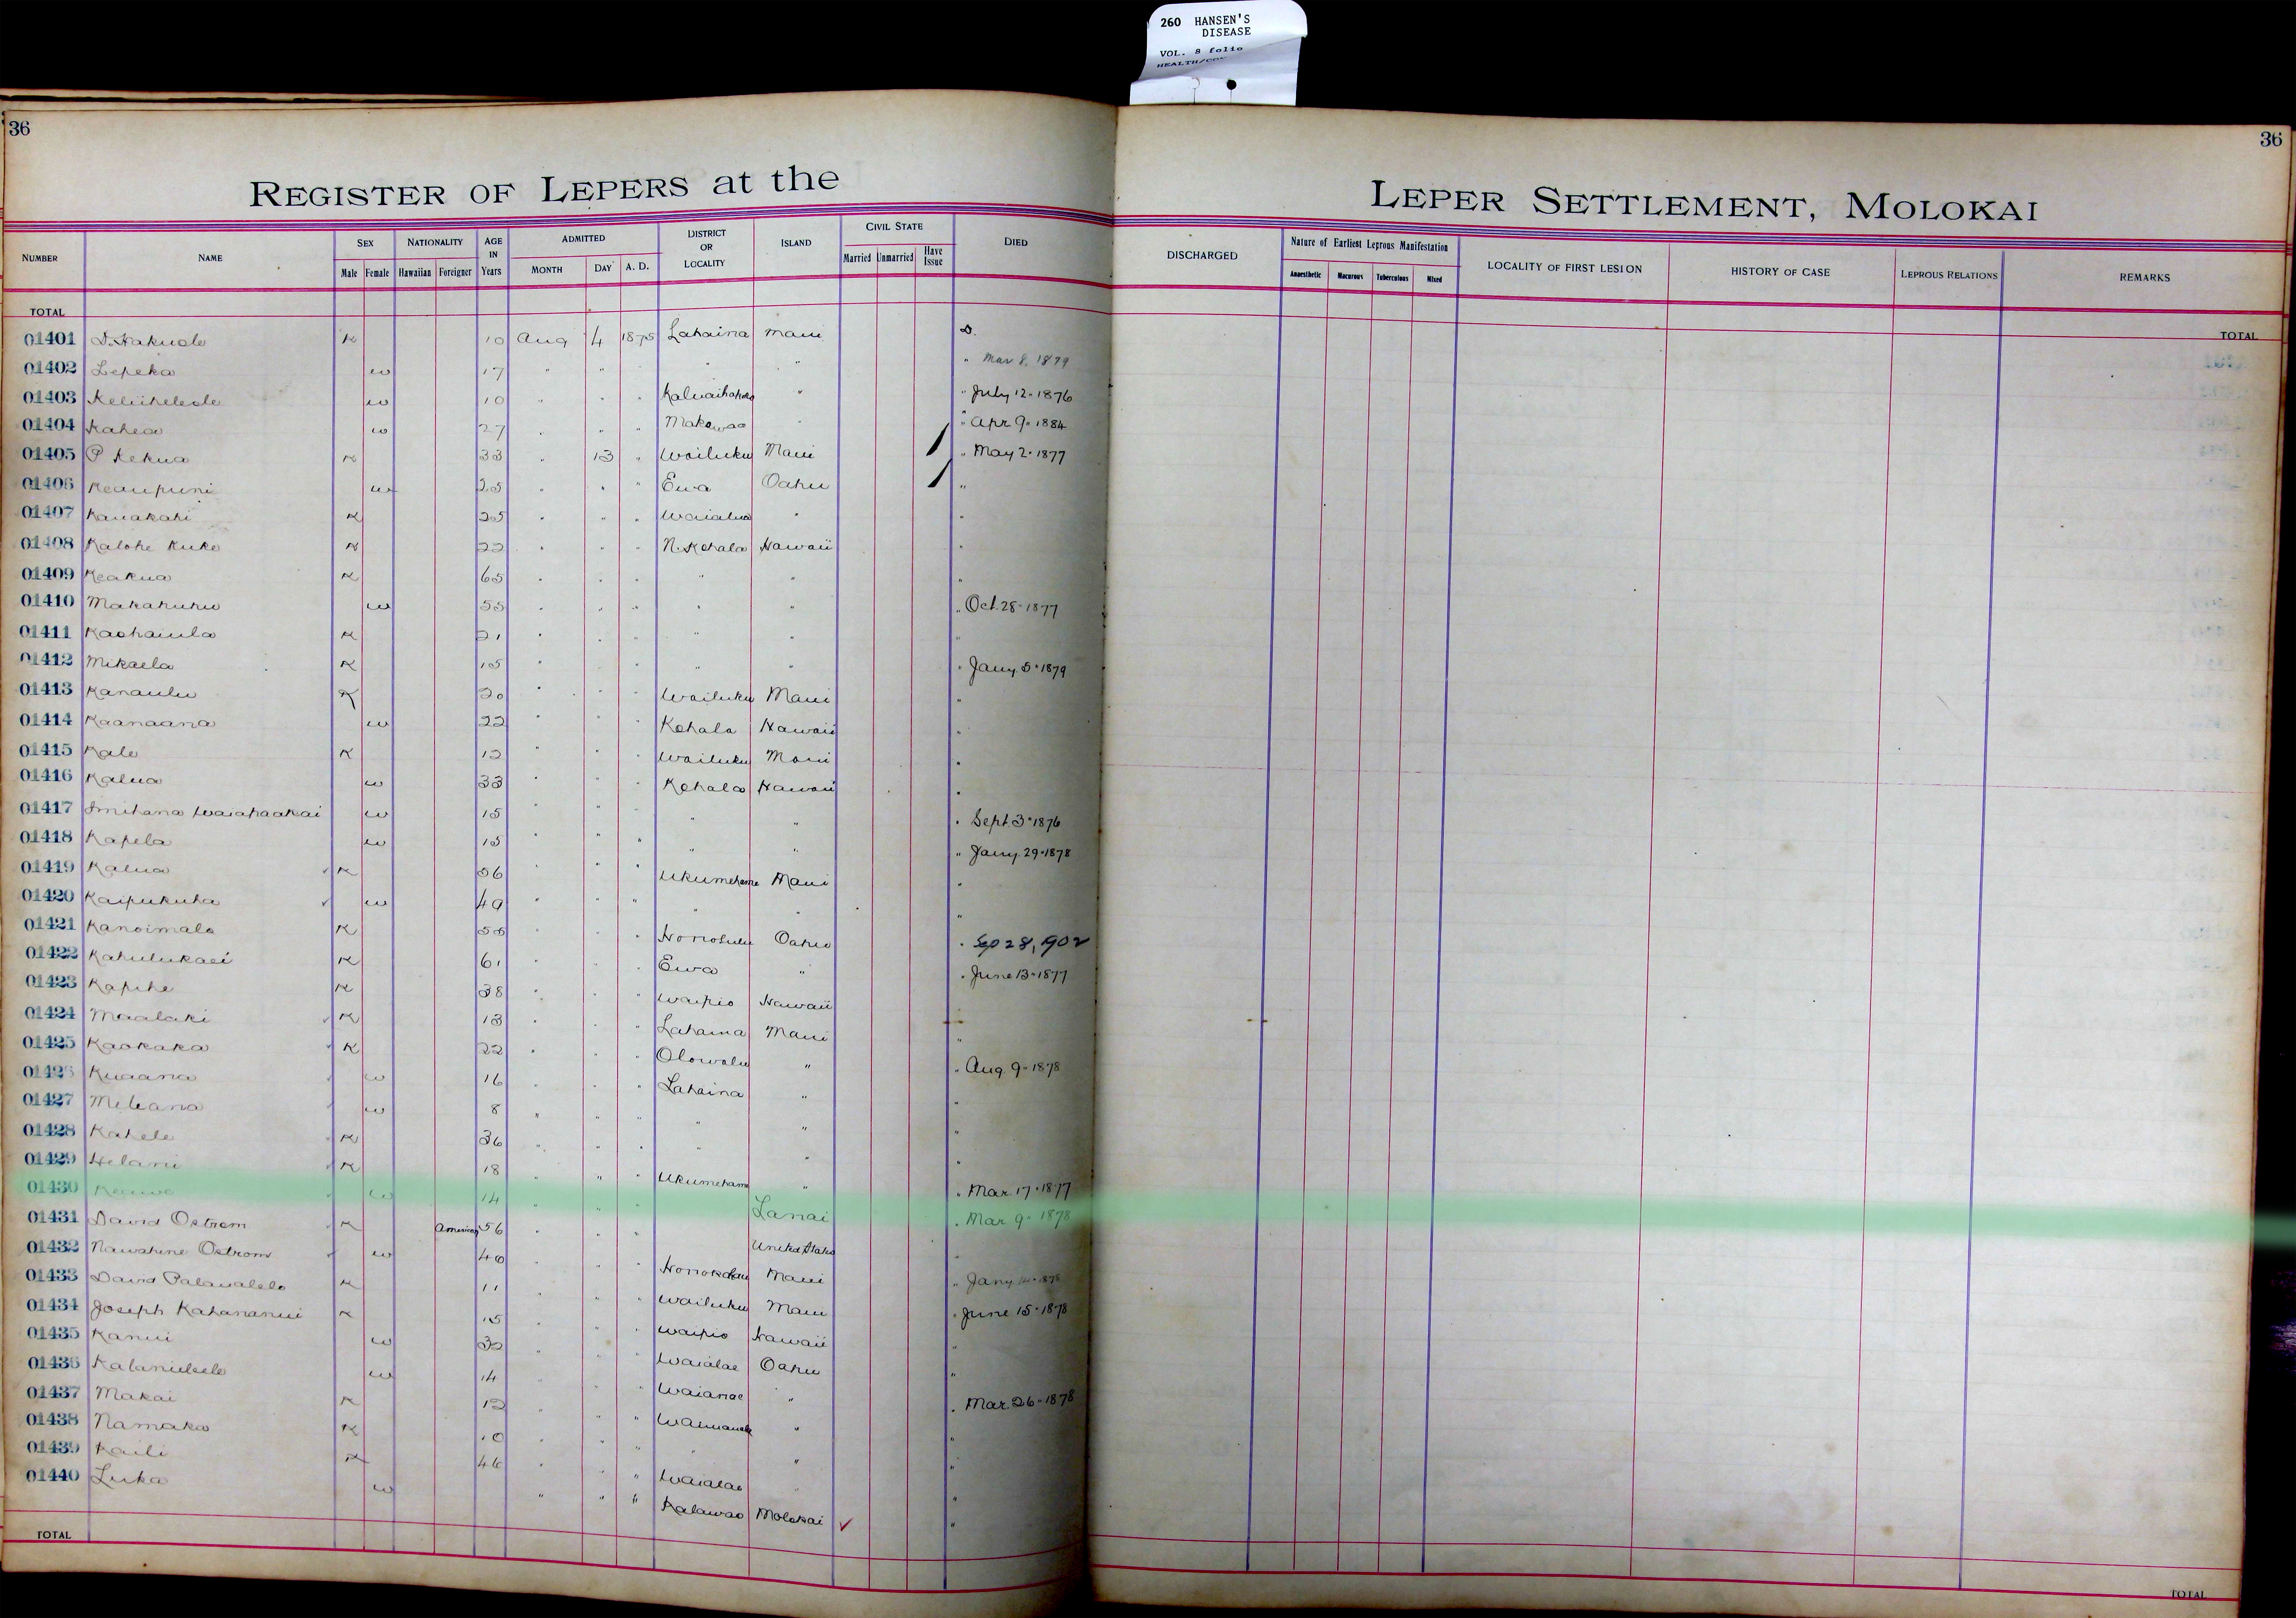 260 HANSEN'S
DISEASE
VOL. 8 folio
36
36
REGISTER OF LEPERS at the LEPER SETTLEMENT, MOLOKAI
NUMBER NAME SEX NATIONALITY AGE IN Years ADMITTED DISTRICT OR LOCALITY ISLAND CIVIL STATE DIED DISCHARGED Nature of Earliest Leprous Manifestation LOCALITY OF FIRST LESION HISTORY OF CASE LEPROUS RELATIONS REMARKS
Male Female Hawaiian Foreigner MONTH DAY A. D. Married Unmarried Have Issue Anaesthetic Macurous Tuberculous Mixed
TOTAL TOTAL
01401 D. Hakuole K 10 Aug 4 1875 Lahaina Maui D.
01402 Lepeka w 17 " " " " " Mar 8, 1879
01403 Keliiheleole w 10 " " " " " July 12-1876
01404 Kahea w 27 " " " Makawao " " Apr 9-1884
01405 P Kekua K 33 " 13 " Wailuku Maui " May 2-1877
01406 Keaupuni w 25 " " " Ewa Oahu "
01407 Kauakahi K 25 " " " Waialua " "
01408 Kalohe Kuke K 22 " " " N. Kohala Hawaii "
01409 Keakua K 65 " " " " " "
01410 Makahuhu w 55 " " " " " " Oct. 28-1877
01411 Kaohaiula K 21 " " " " " "
01412 Mikaela K 15 " " " " " " Jany 5-1879
01413 Kanaulu K 20 " " " Wailuku Maui "
01414 Kaanaana w 22 " " " Kohala Hawaii "
01415 Kale K 12 " " " Wailuku Maui "
01416 Kalua w 33 " " " Kohala Hawaii "
01417 w 15 " " " " " " Sept. 3-1876
01418 Kapela w 15 " " " " " " Jany. 29-1878
01419 Kalua K 56 " " " Ukumehame Maui "
01420 Kaipukuha w 49 " " " " " "
01421 Kanoimalo K 55 " " " Honolulu Oahu " Sep 28, 1902
01422 Kahulukaei K 61 " " " Ewa " " June 13-1877
01423 Kapihe K 38 " " " Waipio Hawaii
01424 Maalaki K 13 " " " Lahaina Maui "
01425 Kaokaka K 22 " " " Olowalu " " Aug. 9-1878
01426 Kuaana w 16 " " " Lahaina " "
01427 Meleana w 8 " " " " " "
01428 Kahele K 36 " " " " " "
01429 Helani K 18 " " " Ukumehame " " Mar. 17-1877
01430 w 14 " " " Lanai " Mar. 9-1878
01431 David Ostrom K American 56 " " " United States "
01432 Nawahine Ostrom w 40 " " " Maui " Jany 1878
01433 David Palaualelo K 11 " " " Wailuku Maui " June 15-1878
01434 Joseph Kahananui K 15 " " " Waipio Hawaii "
01435 Kanui w 32 " " " Waialae Oahu "
01436 w 14 " " " Waianae " " Mar. 26-1878
01437 Makai K 12 " " " " "
01438 Namaka K 10 " " " " " "
01439 Kaili K 46 " " " Waialae " "
01440 Luka w " " " Kalawao Molokai ✓ "
TOTAL TOTAL